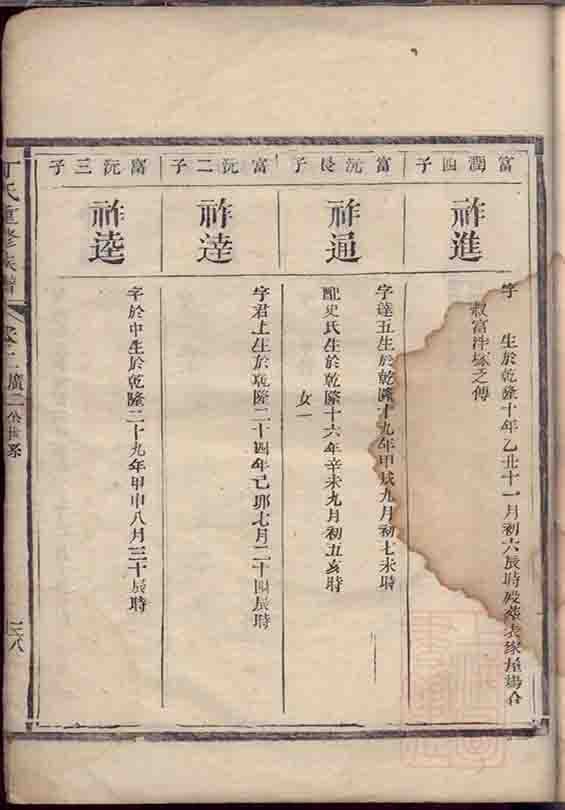 富潤四子
祚進
字 生於乾隆十年乙丑十一月初六辰時殁葬表家屋場合
叔富泮塚之傳
富沅長子
祚通
字達五生於乾隆十九年甲戌九月初七未時
配史氏生於乾隆十六年辛未九月初五亥時
女一
富沅二子
祚達
字君上生於乾隆二十四年己卯七月二十四辰時
富沅三子
祚逵
字於中生於乾隆二十九年甲申八月三十辰時
丁氏重修族譜
卷二廣二公世系
三八